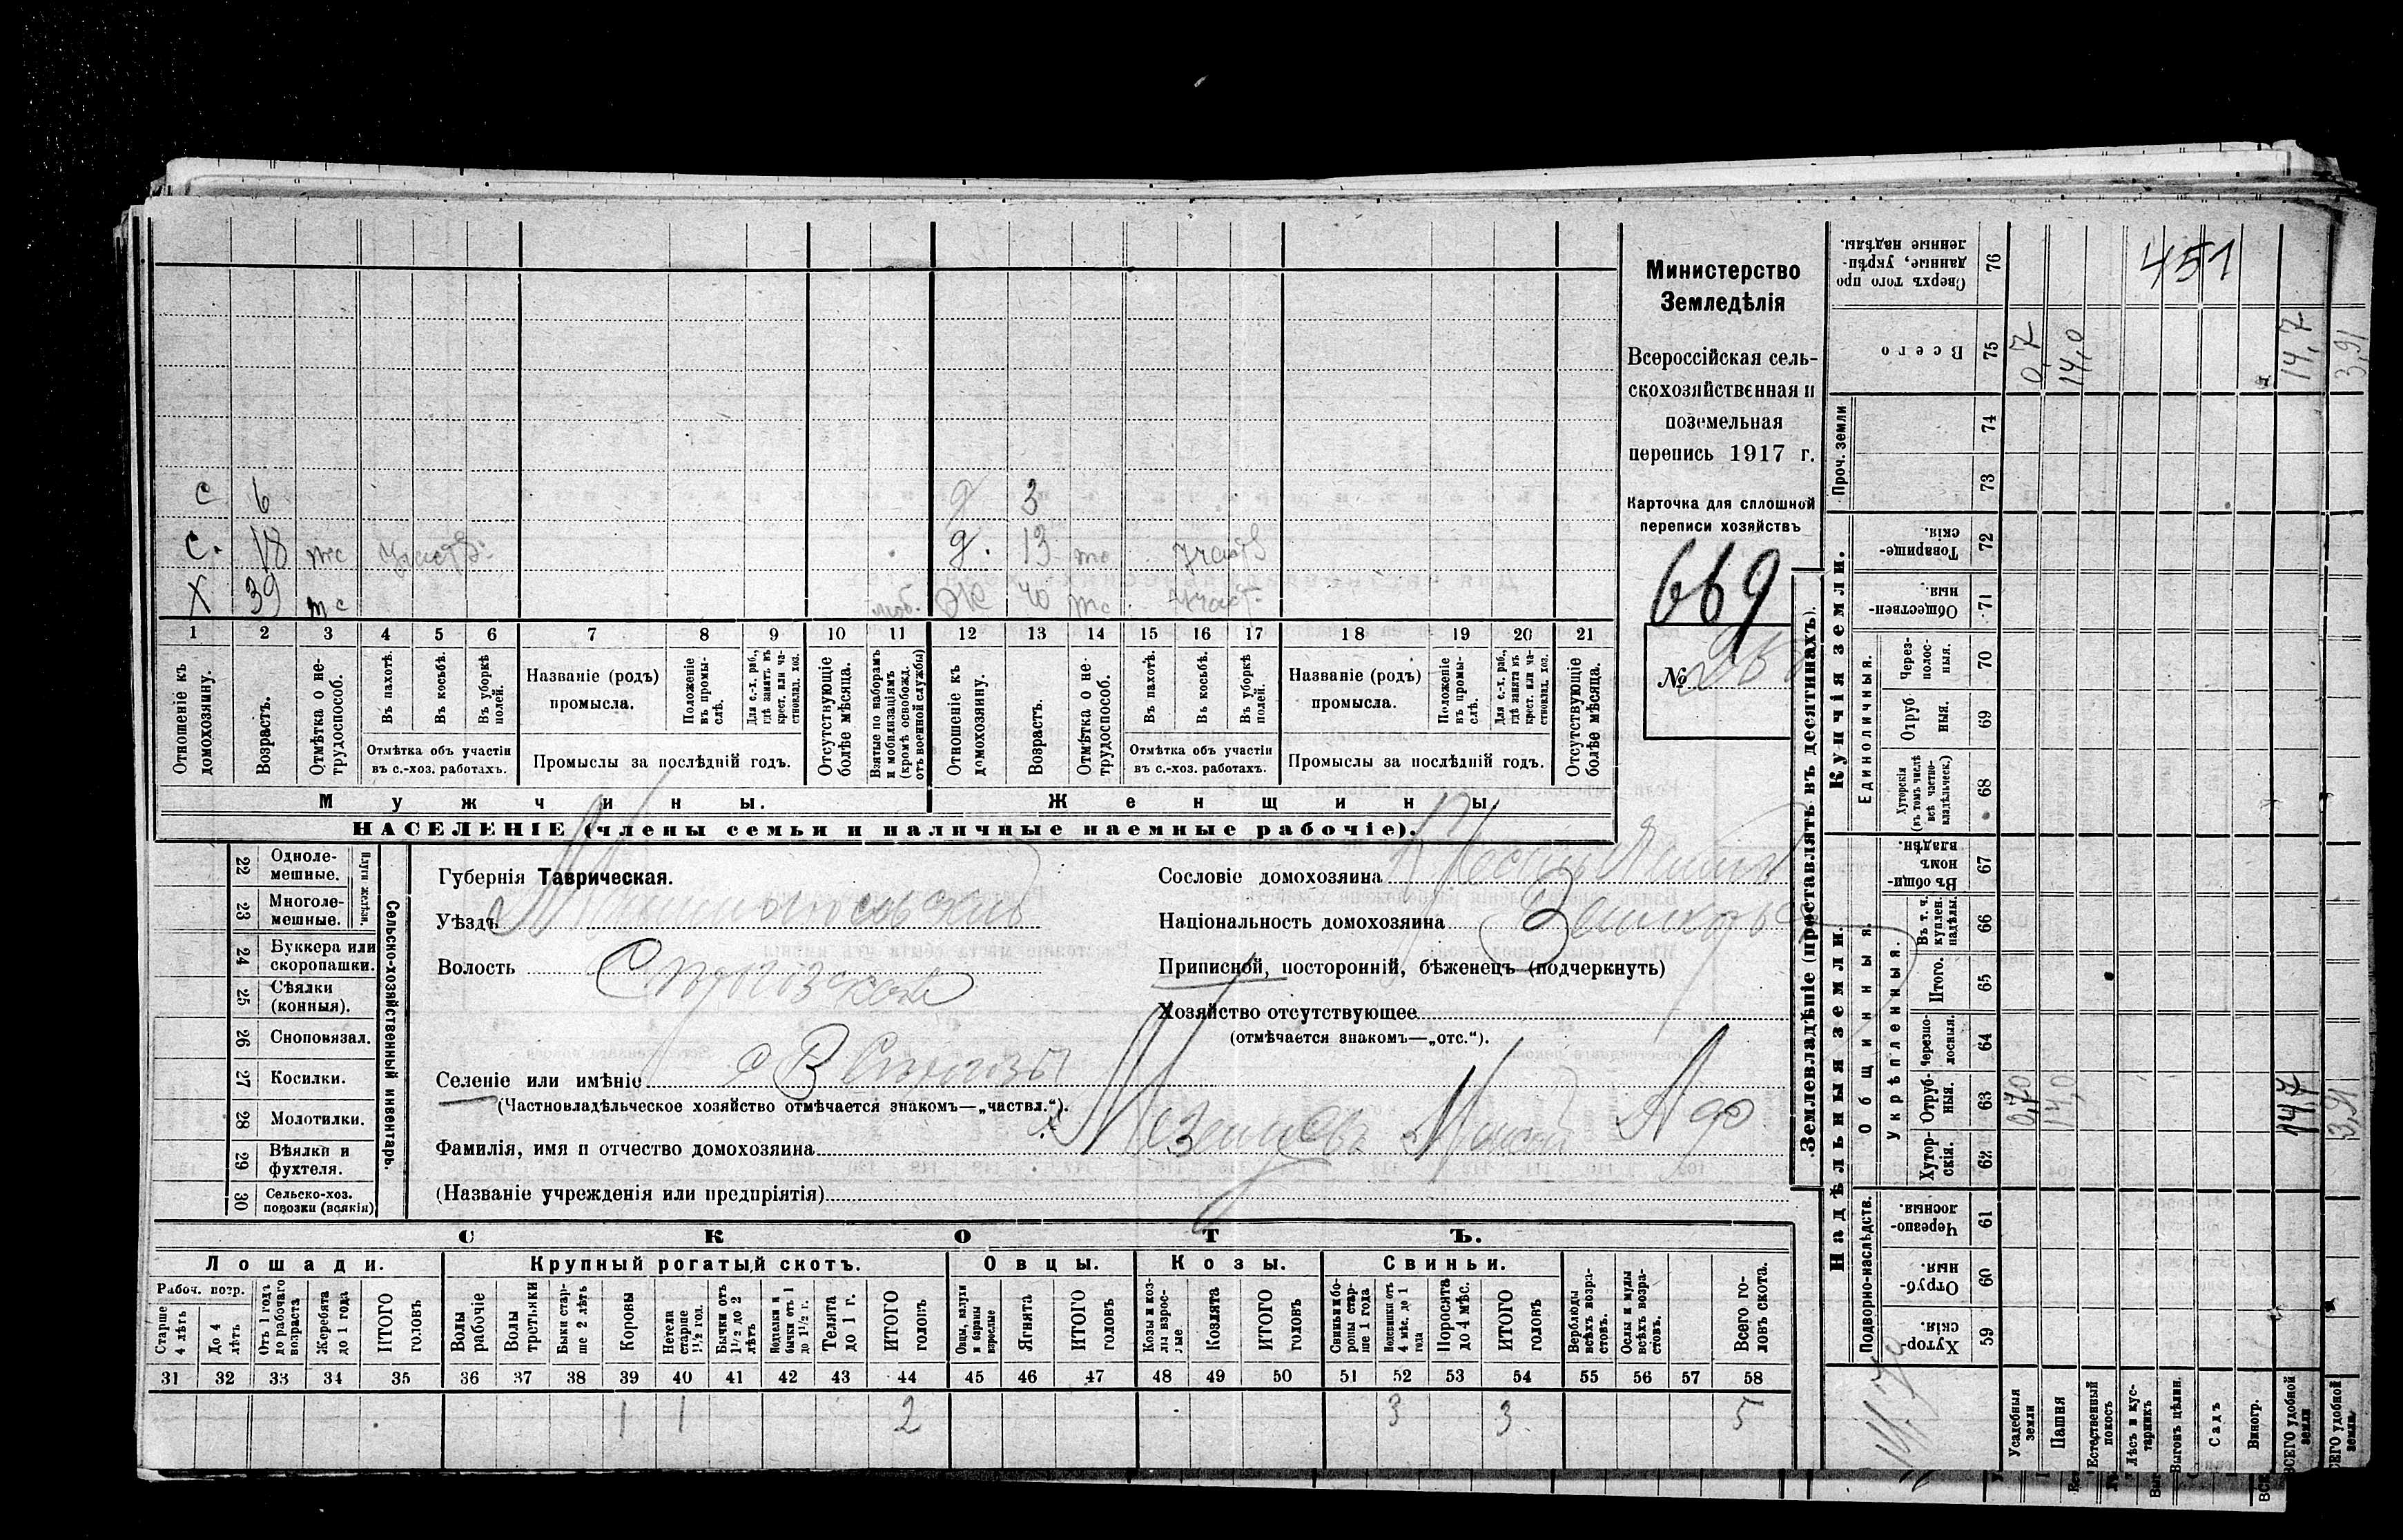 с 6 д 3
с. 18 тс участв. д. 13 тс участв
Х 39 тс моб. ж 40 тс участ.
1 2 3 4 5 6 7 8 9 10 11 12 13 14 15 16 17 18 19 20 21
Отношеніе къ домохозяину.
Возрастъ.
Отмѣтка о нетрудоспособ.
Въ пахотѣ.
Въ косьбѣ.
Въ уборкѣ полей.
Отмѣтка объ участіи
въ с.-хоз. работахъ.
Названіе (родъ)
промысла.
Положеніе въ промыслѣ.
Для с.-х. раб., гдѣ занятъ въ крест. или частновлад. хоз.
Промыслы за послѣдній годъ.
Отсутствующіе болѣе мѣсяца.
Взятые по наборамъ и мобилизаціямъ (кромѣ освобожд. отъ военной службы)
Отношеніе къ домохозяину.
Возрастъ.
Отмѣтка о нетрудоспособ.
Въ пахотѣ.
Въ косьбѣ.
Въ уборкѣ полей.
Отмѣтка объ участіи
въ с.-хоз. работахъ.
Названіе (родъ)
промысла.
Положеніе въ промыслѣ.
Для с.-х. раб., гдѣ занята въ крест. или частновлад. хоз.
Промыслы за послѣдній годъ.
Отсутствующіе болѣе мѣсяца.
Мужчины. Женщины.
НАСЕЛЕНІЕ (члены семьи и наличные наемные рабочіе).
Министерство
Земледѣлія
Всероссійская сель-
скохозяйственная и
поземельная
перепись 1917 г.
Карточка для сплошной
переписи хозяйствъ
669
№
22 Однолемешные.
23 Многолемешные.
Плуги желѣзн.
24 Буккера или скоропашки.
25 Сѣялки (конныя).
26 Сноповязал.
27 Косилки.
28 Молотилки.
29 Вѣялки и фухтеля.
30 Сельско-хоз. повозки (всякія)
Сельско-хозяйственный инвентарь.
Губернія Таврическая.
Уѣздъ
Волость
Селеніе или имѣніе
(Частновладѣльческое хозяйство отмѣчается знакомъ—„частвл.“).
Фамилія, имя и отчество домохозяина
(Названіе учрежденія или предпріятія)
Сословіе домохозяина
Національность домохозяина
Приписной, посторонній, бѣженецъ (подчеркнуть)
Хозяйство отсутствующее
(отмѣчается знакомъ—„отс.“).
СКОТЪ.
Лошади. Крупный рогатый скотъ. Овцы. Козы. Свиньи.
Рабоч. возр.
Старше 4 лѣтъ
До 4 лѣтъ
Отъ 1 года до рабочаго возраста
Жеребята до 1 года
ИТОГО головъ
Волы рабочіе
Волы третьяки
Быки старше 2 лѣтъ
Коровы
Нетели старше 1½ год.
Бычки отъ 1½ до 2 лѣтъ
Телята до 1 г.
ИТОГО головъ
Ягнята
ИТОГО головъ
Козы и козлы взрослые
Козлята
ИТОГО головъ
Поросята до 4 мѣс.
ИТОГО головъ
Верблюды всѣхъ возрастовъ.
Ослы и мулы всѣхъ возрастовъ.
Всего головъ скота.
31 32 33 34 35 36 37 38 39 40 41 42 43 44 45 46 47 48 49 50 51 52 53 54 55 56 57 58
1 1 2 3 3 5
Землевладѣніе (проставлять въ десятинахъ).
Надѣльныя земли.
Купчія земли.
Проч. земли
Подворно-наслѣдств.
Общинныя.
Укрѣпленныя.
Единоличныя.
Хуторскія. 59
Отрубныя. 60
Черезполосныя. 61
Хуторскія. 62
Отрубныя. 63
Черезполосныя. 64
Итого. 65
Въ т. ч. куплен. надѣлы. 66
Въ общинномъ владѣн. 67
Хуторскія (въ томъ числѣ всѣ частновладѣльческ.) 68
Отрубныя. 69
Черезполосныя. 70
Общественныя. 71
Товарищескія. 72
73
74
Всего 75
Сверхъ того проданные, укрѣпленные надѣлы. 76
451
Усадебныя земли 0,70 0,7
Пашня 14,0 14,0
Естественный покосъ
Лѣсъ и кустарникъ
Выгонъ цѣлин.
Садъ
Виногр.
ВСЕГО удобной земли 14,7 14,7
3,91 3,91